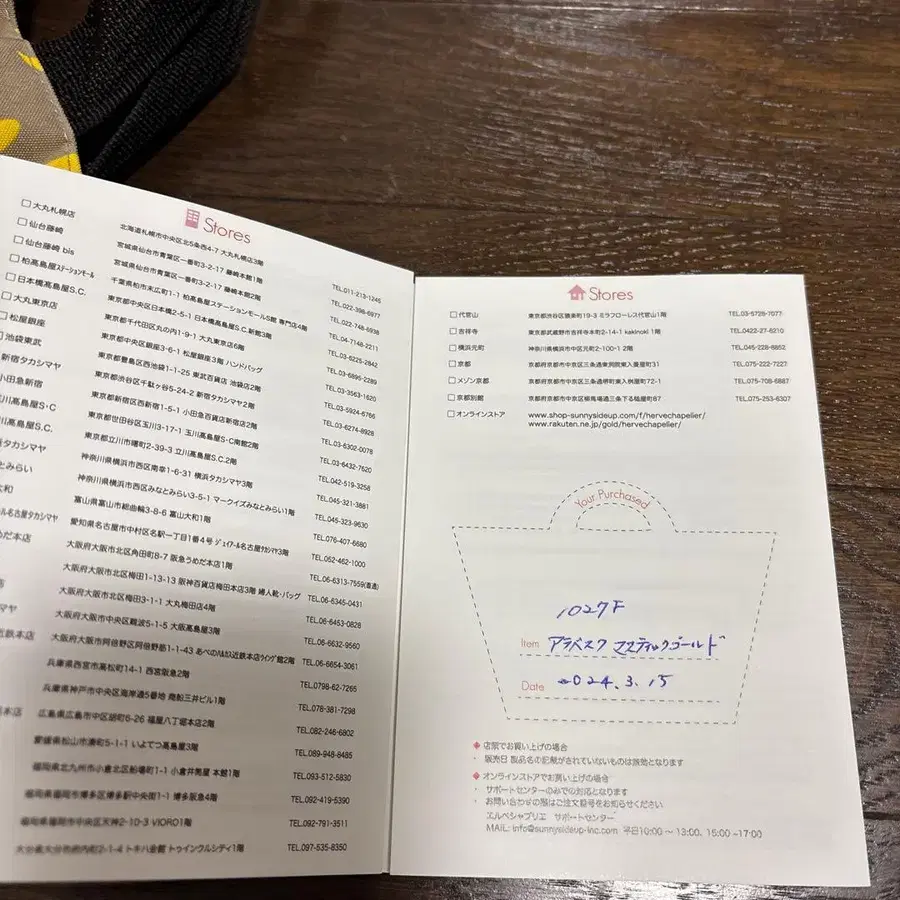 Stores
大丸札幌店 北海道札幌市中央区北5条西4-7 大丸札幌店3階 TEL.011-213-1245
仙台藤崎 宮城県仙台市青葉区一番町3-2-17 藤崎本館1階 TEL.022-398-6977
仙台藤崎 bis 宮城県仙台市青葉区一番町3-2-17 藤崎本館2階 TEL.022-748-6938
柏高島屋ステーションモール 千葉県柏市末広町1-1 柏高島屋ステーションモールS館 専門店4階 TEL.04-7148-2211
日本橋高島屋S.C. 東京都中央区日本橋2-5-1 日本橋高島屋S.C.新館3階 TEL.03-6225-2842
大丸東京店 東京都千代田区丸の内1-9-1 大丸東京店6階 TEL.03-6895-2289
松屋銀座 東京都中央区銀座3-6-1 松屋銀座3階 ハンドバッグ TEL.03-3563-1620
池袋東武 東京都豊島区西池袋1-1-25 東武百貨店 池袋店2階 TEL.03-5924-6766
新宿タカシマヤ 東京都渋谷区千駄ヶ谷5-24-2 新宿タカシマヤ2階 TEL.03-6274-8928
小田急新宿 東京都新宿区西新宿1-5-1 小田急百貨店新宿店2階 TEL.03-6302-0078
川高島屋S・C 東京都世田谷区玉川3-17-1 玉川高島屋S・C南館2階 TEL.03-6432-7620
高島屋S.C. 東京都立川市曙町2-39-3 立川高島屋S.C.2階 TEL.042-519-3258
タカシマヤ 神奈川県横浜市西区南幸1-6-31 横浜タカシマヤ3階 TEL.045-321-3881
とみらい 神奈川県横浜市西区みなとみらい3-5-1 マークイズみなとみらい1階 TEL.045-323-9630
大和 富山県富山市総曲輪3-8-6 富山大和1階 TEL.076-407-6680
ル名古屋タカシマヤ 愛知県名古屋市中村区名駅一丁目1番4号 ジェイアール名古屋タカシマヤ3階 TEL.052-462-1000
めだ本店 大阪府大阪市北区角田町8-7 阪急うめだ本店1階 TEL.06-6313-7559(直通)
大阪府大阪市北区梅田1-13-13 阪神百貨店梅田本店3階 婦人靴・バッグ TEL.06-6345-0431
店 大阪府大阪市北区梅田3-1-1 大丸梅田店4階 TEL.06-6453-0828
マヤ 大阪府大阪市中央区難波5-1-5 大阪高島屋3階 TEL.06-6632-9560
近鉄本店 大阪府大阪市阿倍野区阿倍野筋1-1-43 あべのハルカス近鉄本店ウイング館2階 TEL.06-6654-3061
兵庫県西宮市高松町14-1 西宮阪急2階 TEL.0798-62-7265
兵庫県神戸市中央区海岸通5番地 商船三井ビル1階 TEL.078-381-7298
本店 広島県広島市中区胡町6-26 福屋八丁堀本店2階 TEL.082-246-6802
愛媛県松山市湊町5-1-1 いよてつ高島屋3階 TEL.089-948-8485
福岡県北九州市小倉北区船場町1-1 小倉井筒屋 本館1階 TEL.093-512-5830
福岡県福岡市博多区博多駅中央街1-1 博多阪急4階 TEL.092-419-5390
福岡県福岡市中央区天神2-10-3 VIORO1階 TEL.092-791-3511
大分県大分市府内町2-1-4 トキハ会館 トゥインクルシティ1階 TEL.097-535-8350
Stores
代官山 東京都渋谷区猿楽町19-3 ミラフローレス代官山1階 TEL.03-5728-7077
吉祥寺 東京都武蔵野市吉祥寺本町2-14-1 kakinoki 1階 TEL.0422-27-6210
横浜元町 神奈川県横浜市中区元町2-100-1 2階 TEL.045-228-8862
京都 京都府京都市中京区三条通東洞院東入菱屋町31 TEL.075-222-7227
メゾン京都 京都府京都市中京区三条通堺町東入桝屋町72-1 TEL.075-708-6887
京都別館 京都府京都市中京区柳馬場通三条下る槌屋町87 TEL.075-253-6307
オンラインストア www.shop-sunnysideup.com/f/hervechapelier/
www.rakuten.ne.jp/gold/hervechapelier/
Your Purchased
1027F
Item アラベスク マスティックゴールド
Date 2024.3.15
店頭でお買い上げの場合
・ 販売日 製品名の記載がされていないものは無効となります
オンラインストアでお買い上げの場合
・ サポートセンターのみでの対応となります
・ お問い合わせの際はご注文番号をお知らせください
エルベシャプリエ サポートセンター
MAIL: info@sunnysideup-inc.com 平日10:00 ～ 13:00, 15:00 ~17:00